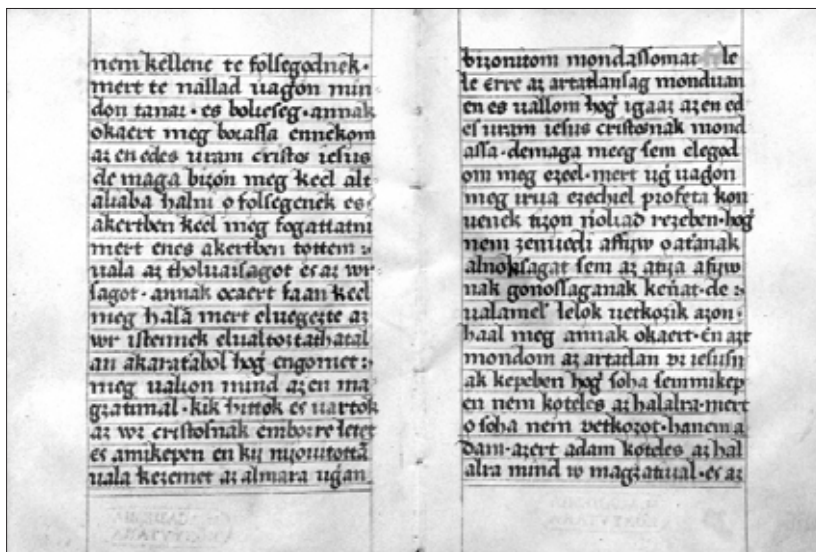 nem kellene te folsegodnek·
mert te nallad uagon min
don tanaz· es bolcseseg· annak
okaert meg bocassa ennekom
az en edes uram cristos iesus
de maga bizon meg keel alt
aliaba halni o folsegenek es
akertben keel meg fogattatni
mert enes akertben tottem
uala az tholuaisagot es az wr
sagot· annak ocaert faan keel
meg halā mert eluegezte az
wr istennek
an akaratabol hog engomet
meg ualton mind azen ma
gzatimal· kik hittok es uartok
az wr cristosnak emborre letet
es amikepen en ky
uala kezemet az almara ugan
bizonitom mondassomat le
le erre az artatlansag monduan
en es uallom hog igaaz azen ed
es uram iesus cristosnak mond
assa· demaga meeg sem eleged
om meg ezzel· mert ug uagon
meg irua ezechiel profeta kon
uenek tizon nolcad rezeben· hog
nem zenuedi affyw oatanak
alnoksagat sem az atya afyw
nak gonossaganak
ualamel lelok uetkozik azon·
haal meg annak okaert· En azt
mondom az artatlan vr iesusn
ak kepeben hog soha semmikep
en nem koteles az halalra· mert
o soha nem vetkozot· hanem a
dam· azert adam koteles az hal
alra mind w magzatiual· es az